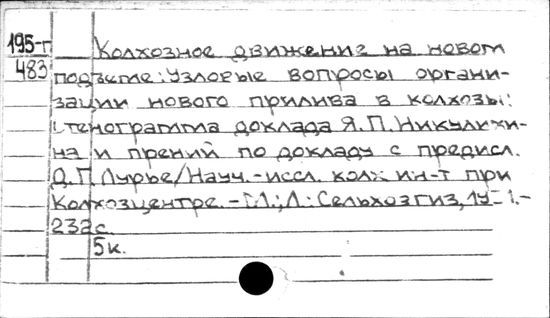 195-г
483
Колхозное движение на новом
подъеме: узловые вопросы органи-
зации нового прилива в колхозы:
стенограмма доклада Я.П.Никулихи-
на и прений по докладу с предисл.
Д.П.Лурье/Науч.-иссл. колх ин-т при
Колхозцентре. - М.; Л.: Сельхозгиз,
232с.
5к.